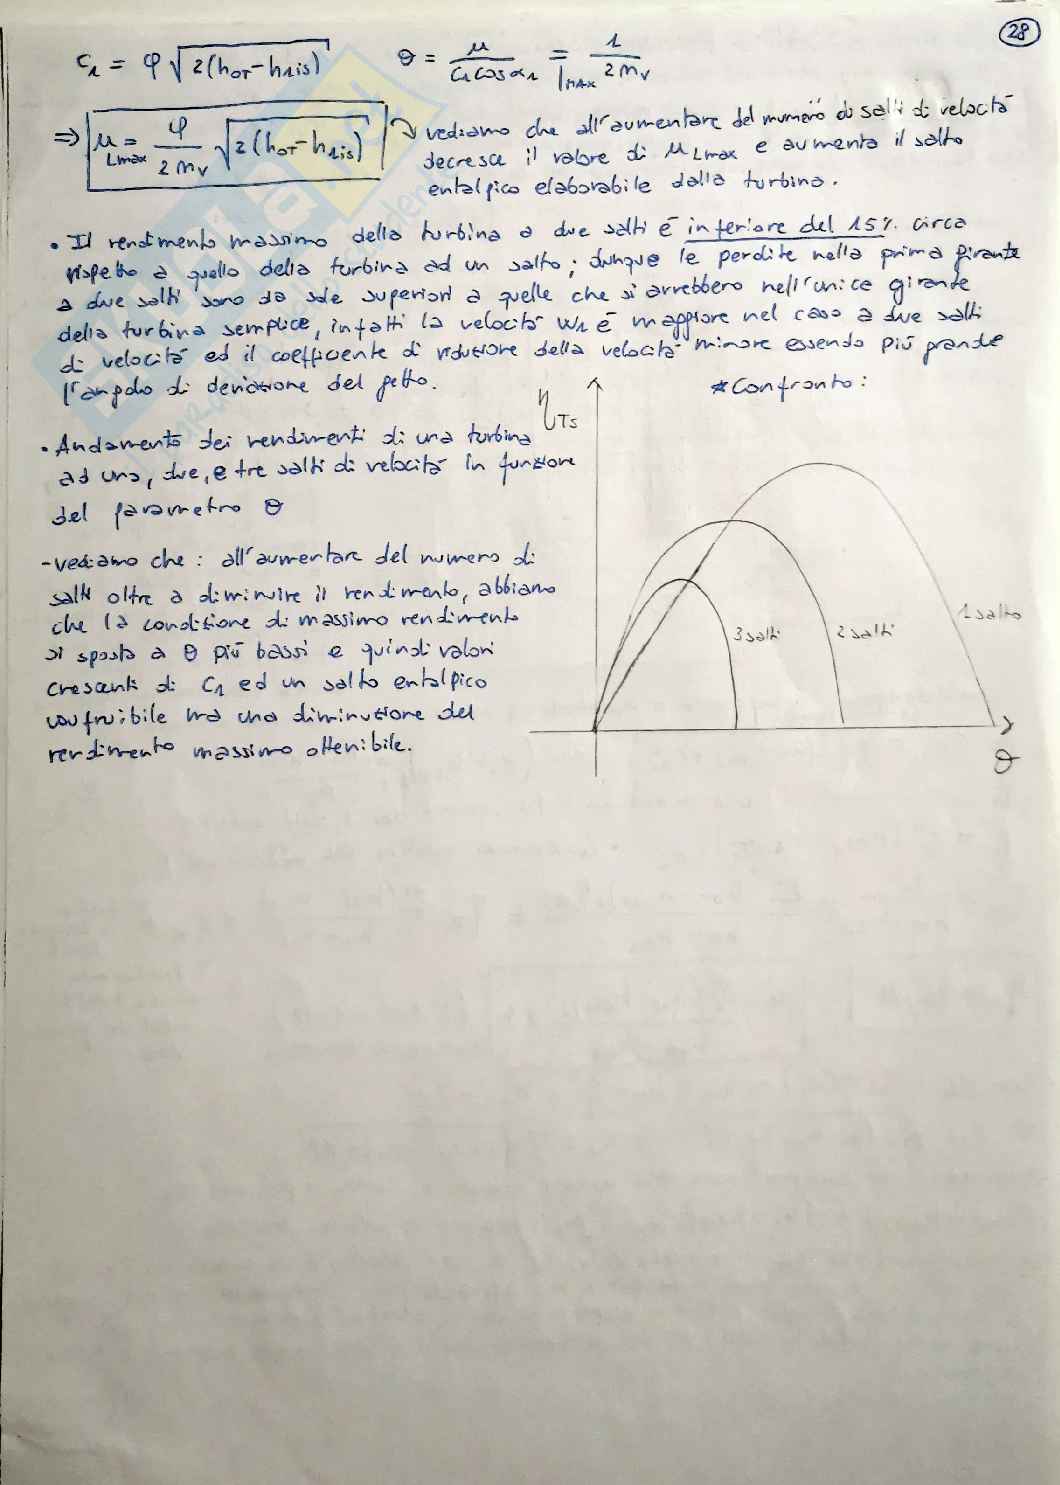 28
c₁ = φ √2(h₀T - h₁is)    θ = u / c₁cosα₁ =|MAX 1 / 2 nv
⇒ u Lmax = φ / 2 nv √2(h₀T - h₁is) ↷ vediamo che all'aumentare del numero di salti di velocità
decresce il valore di u Lmax e aumenta il salto
entalpico elaborabile dalla turbina.
• Il rendimento massimo della turbina a due salti è inferiore del 15% circa
rispetto a quello della turbina ad un salto; dunque le perdite nella prima girante
a due salti sono da sole superiori a quelle che si avrebbero nell'unica girante
della turbina semplice, infatti la velocità w₁ è maggiore nel caso a due salti
di velocità ed il coefficiente di riduzione della velocità minore essendo più grande
l'angolo di deviazione del getto.
* Confronto:
• Andamento dei rendimenti di una turbina
ad uno, due, e tre salti di velocità in funzione
del parametro θ
- vediamo che: all'aumentare del numero di
salti oltre a diminuire il rendimento, abbiamo
che la condizione di massimo rendimento
si sposta a θ più bassi e quindi valori
crescenti di c₁ ed un salto entalpico
usufruibile ma una diminuzione del
rendimento massimo ottenibile.
ηTS
3 salti
2 salti
1 salto
θ